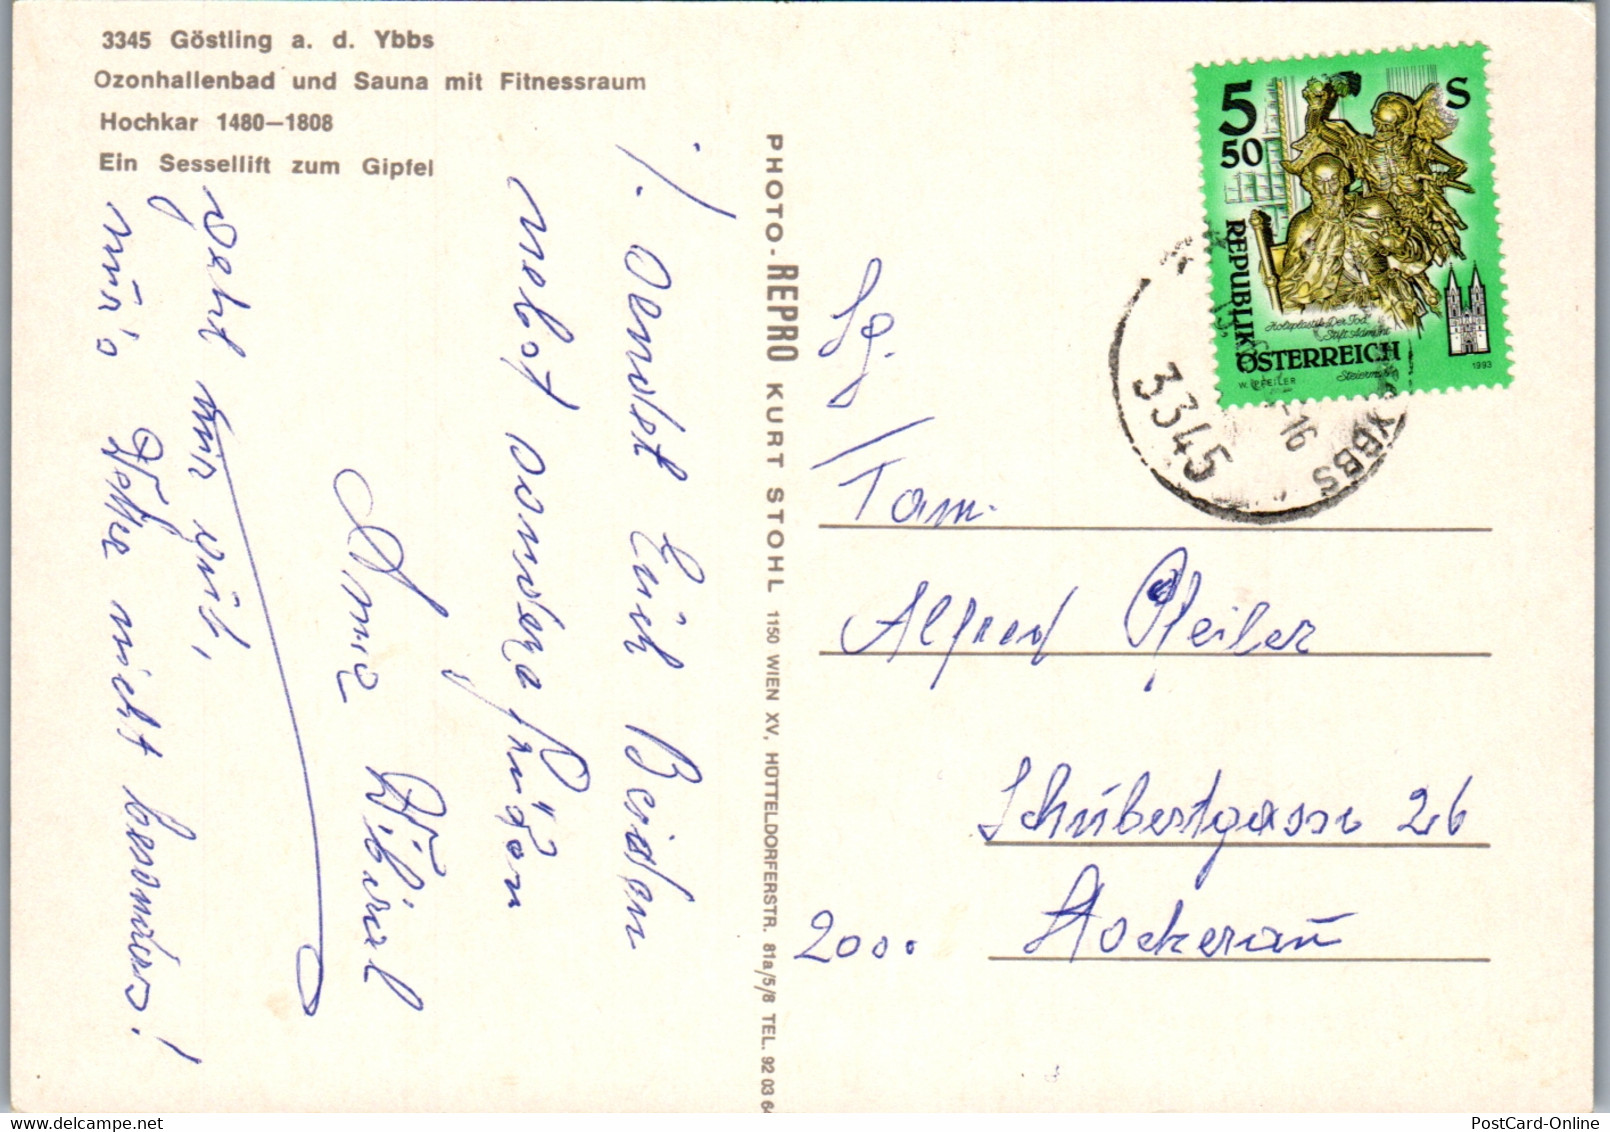 3345 Göstling a. d. Ybbs
Ozonhallenbad und Sauna mit Fitnessraum
Hochkar 1480—1808
Ein Sessellift zum Gipfel
! sendet Euch Beiden
nebst
Grüßen
Anna
geht mir gut,
nur's Wetter nicht besonders!
PHOTO-REPRO KURT STOHL 1150 WIEN XV, HÜTTELDORFERSTR. 81a/5/8 TEL. 92 03 64
5 50 S
REPUBLIK
ÖSTERREICH
Holzplastik „Der Tod"
Stift Admont
Steiermark
W. PFEILER
1993
3345
YBBS
-16
Fam.
Alfred Pfeiler
Schubertgasse 26
2000 Stockerau
PostCard-Online